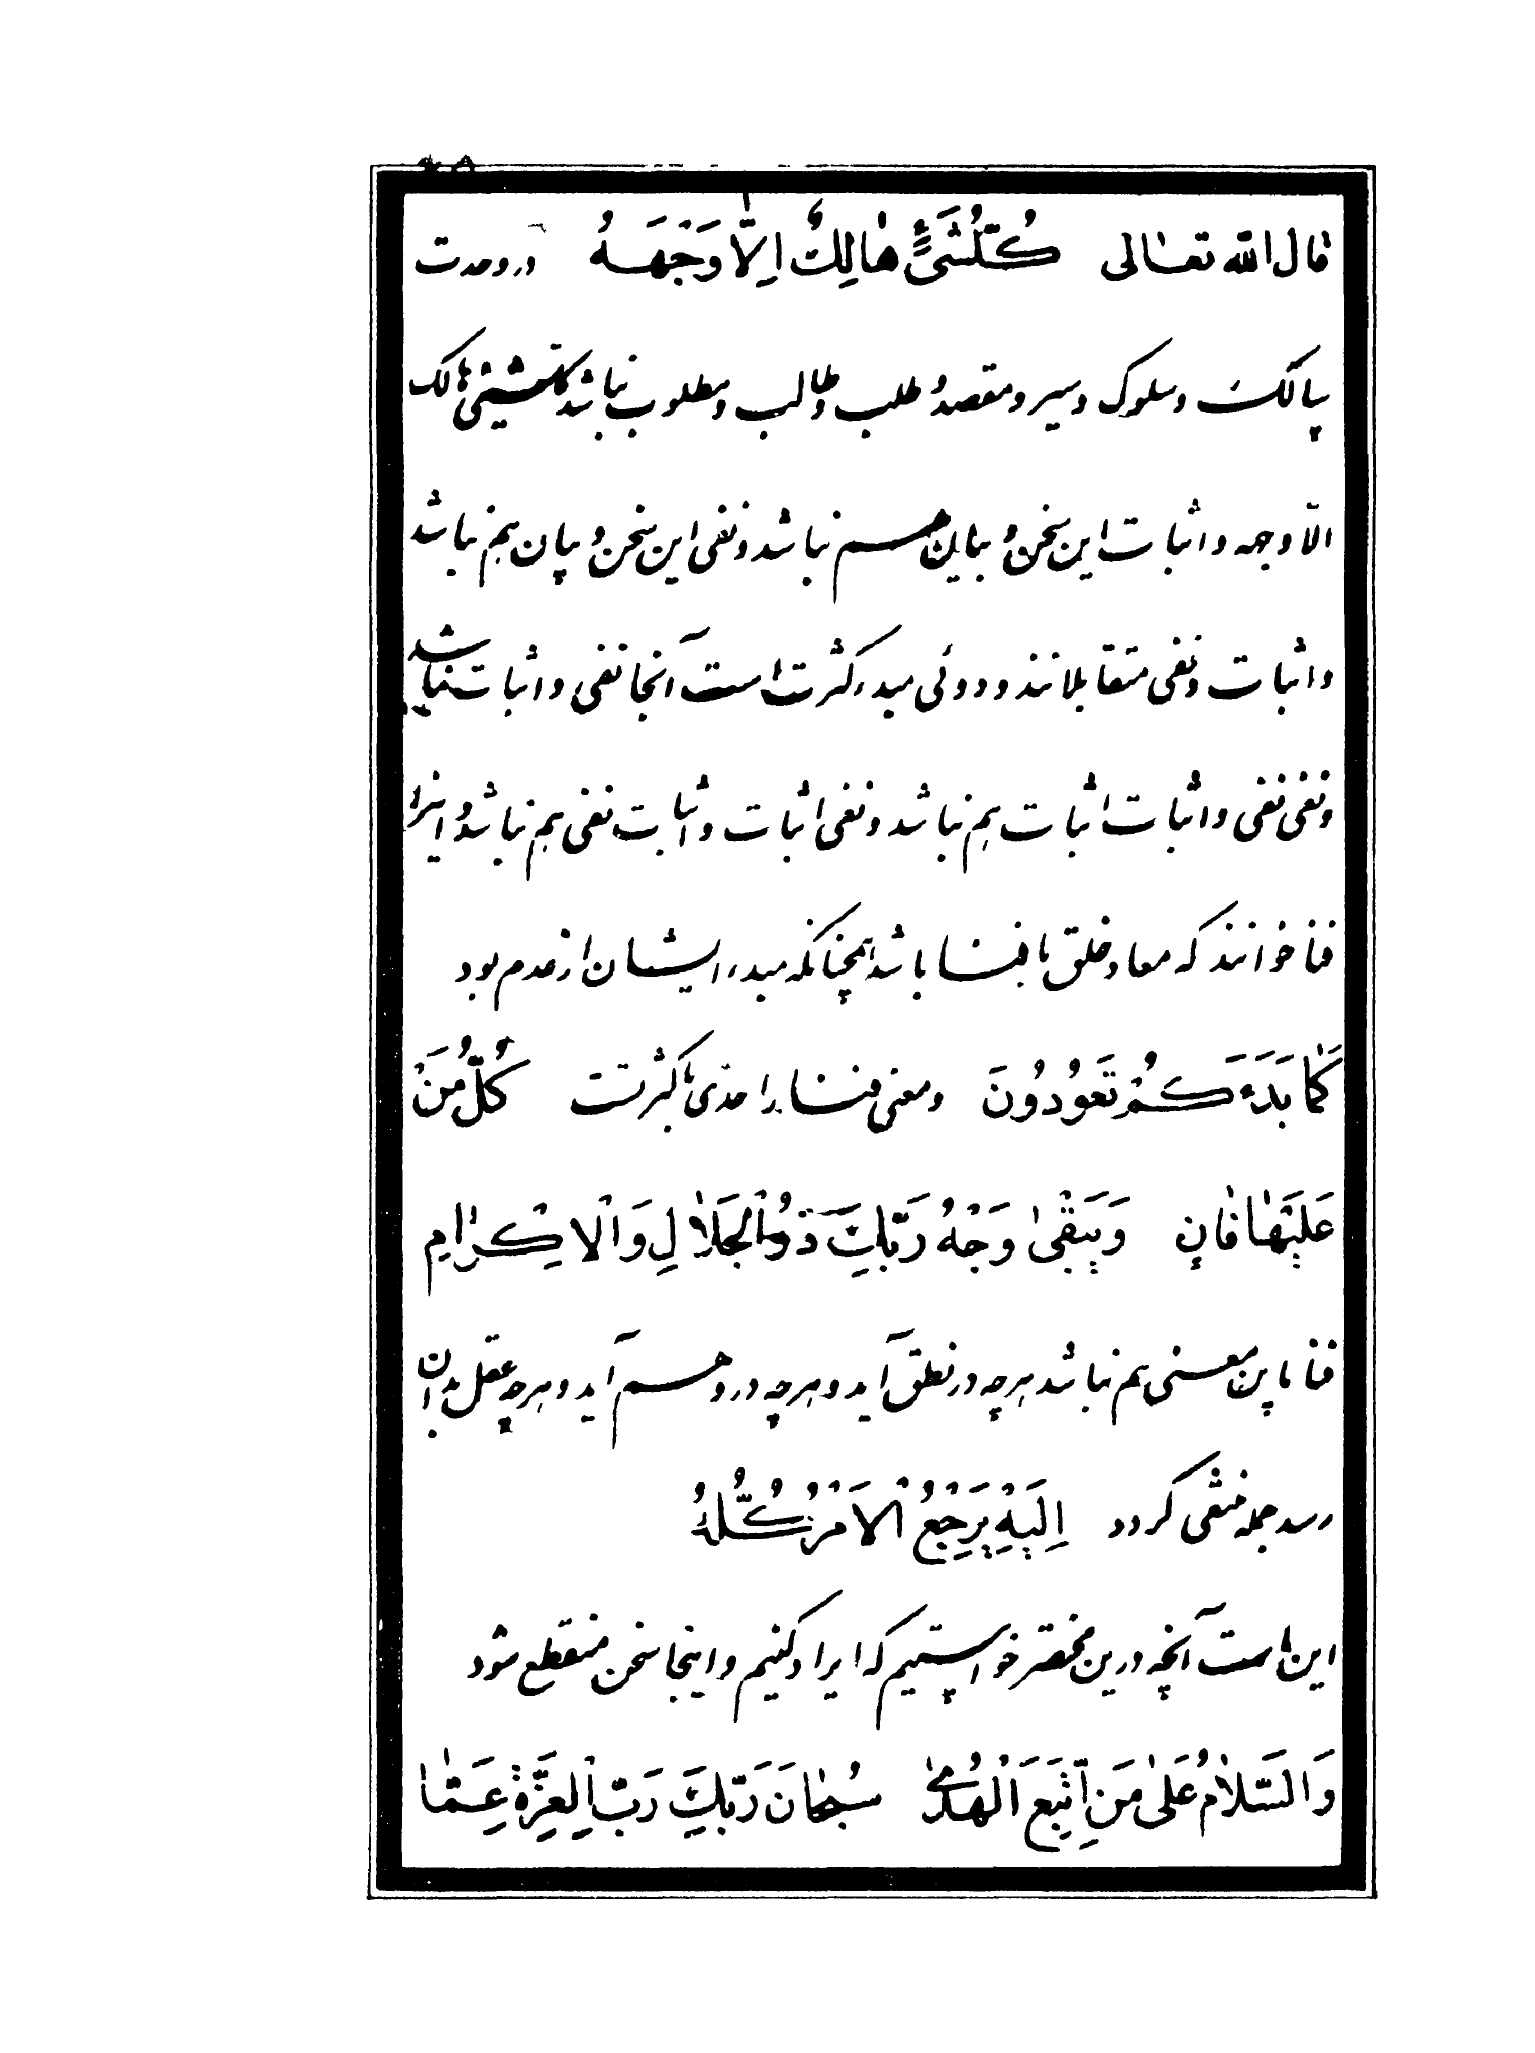 قال الله تعالی كُلُّشَیْءٍ هٰالِكٌ اِلّٰا وَجْهَهُ در وحدت
سالک و سلوک و سیر و مقصد و طلب و طالب و مطلوب نباشد کلشیئی هالک
الا وجهه و اثبات این سخن و بیان هم نباشد و نفی این سخن و بیان هم نباشد
و اثبات و نفی متقابلانند و دوئی مبدء کثرت است آنجا نفی و اثبات نباشد
و نفی نفی و اثبات اثبات هم نباشد و نفی اثبات و اثبات نفی هم نباشد و اینرا
فنا خوانند که معاد خلق با فنا باشد همچنانکه مبدء ایشان از عدم بود
كَمٰا بَدَءَكُمْ تَعُودُونَ و معنی فنا را حدی با کثرتست كُلُّ مَنْ
عَلَیْهٰا فٰانٍ وَ یَبْقیٰ وَجْهُ رَبِّكَ ذُو الْجَلٰالِ وَ الْاِكْرٰامِ
فنا باین معنی هم نباشد هرچه در نطق آید و هرچه در وهم آید و هرچه عقل بدان
رسد جمله منتفی گردد اِلَیْهِ یَرْجِعُ الْاَمْرُ كُلُّهُ
این است آنچه درین مختصر خواستیم که ایراد کنیم و اینجا سخن منقطع شود
وَ السَّلٰامُ عَلیٰ مَنِ اتَّبَعَ الْهُدیٰ سُبْحٰانَ رَبِّكَ رَبِّ الْعِزَّةِ عَمّٰا